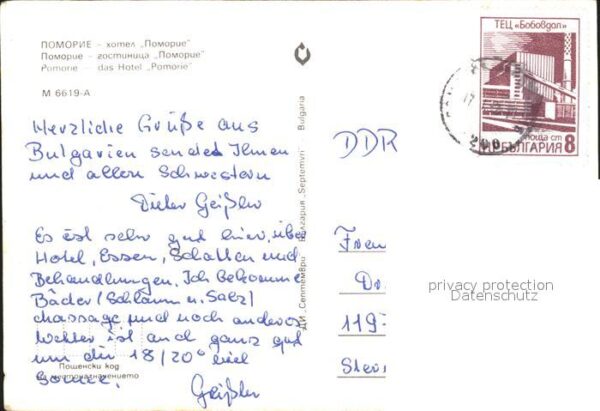 ПОМОРИЕ – хотел „Поморие"
Поморие – гостиница „Поморие"
Pomorie – das Hotel „Pomorie"
М 6619-А
Herzliche Grüße aus
Bulgarien sendet Ihnen
und allen Schwestern
Dieter Geißler
Es ist sehr gut hier, über
Hotel, Essen, Schatten und
Behandlungen. Ich bekomme
Bäder (Schlamm u. Salz)
Massage und noch anderes
Wetter ist auch ganz gut
um die 18/20° viel
Sonne.
Geißler
Пощенски код
на местоназначението
ДИ „Септември" България „Septemvri" Bulgaria
DDR
ТЕЦ „Бобовдол"
поща ст 8
НР БЪЛГАРИЯ
Frau
Dr.
119
privacy protection
Datenschutz